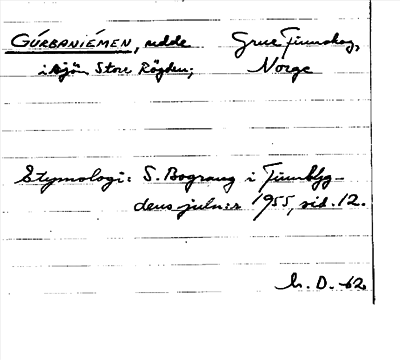 GÚRBANIÉMEN, udde
Grue Finnskog,
i sjön Store Rögden;
Norge
Etymologi: S. Bograng i Finnbyg-
dens julnr 1955, sid. 12.
h. D. -62